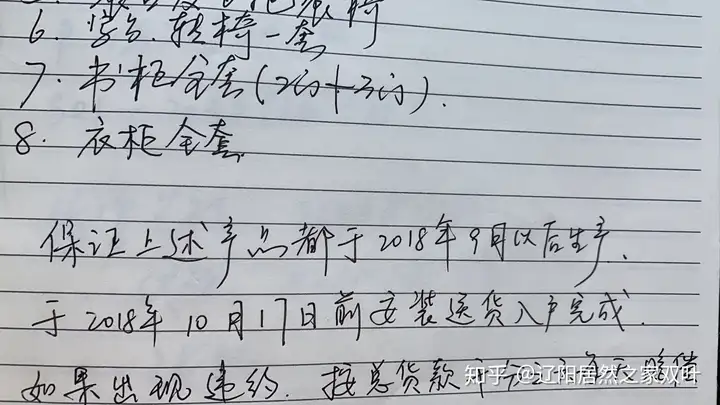 6. 学台.转椅一套
7. 书柜全套(2门+3门).
8. 衣柜全套
保证上述产品都于2018年9月以后生产.
于2018年10月17日前安装送货入户完成.
如果出现违约.按总货款
知乎 @辽阳居然之家双叶